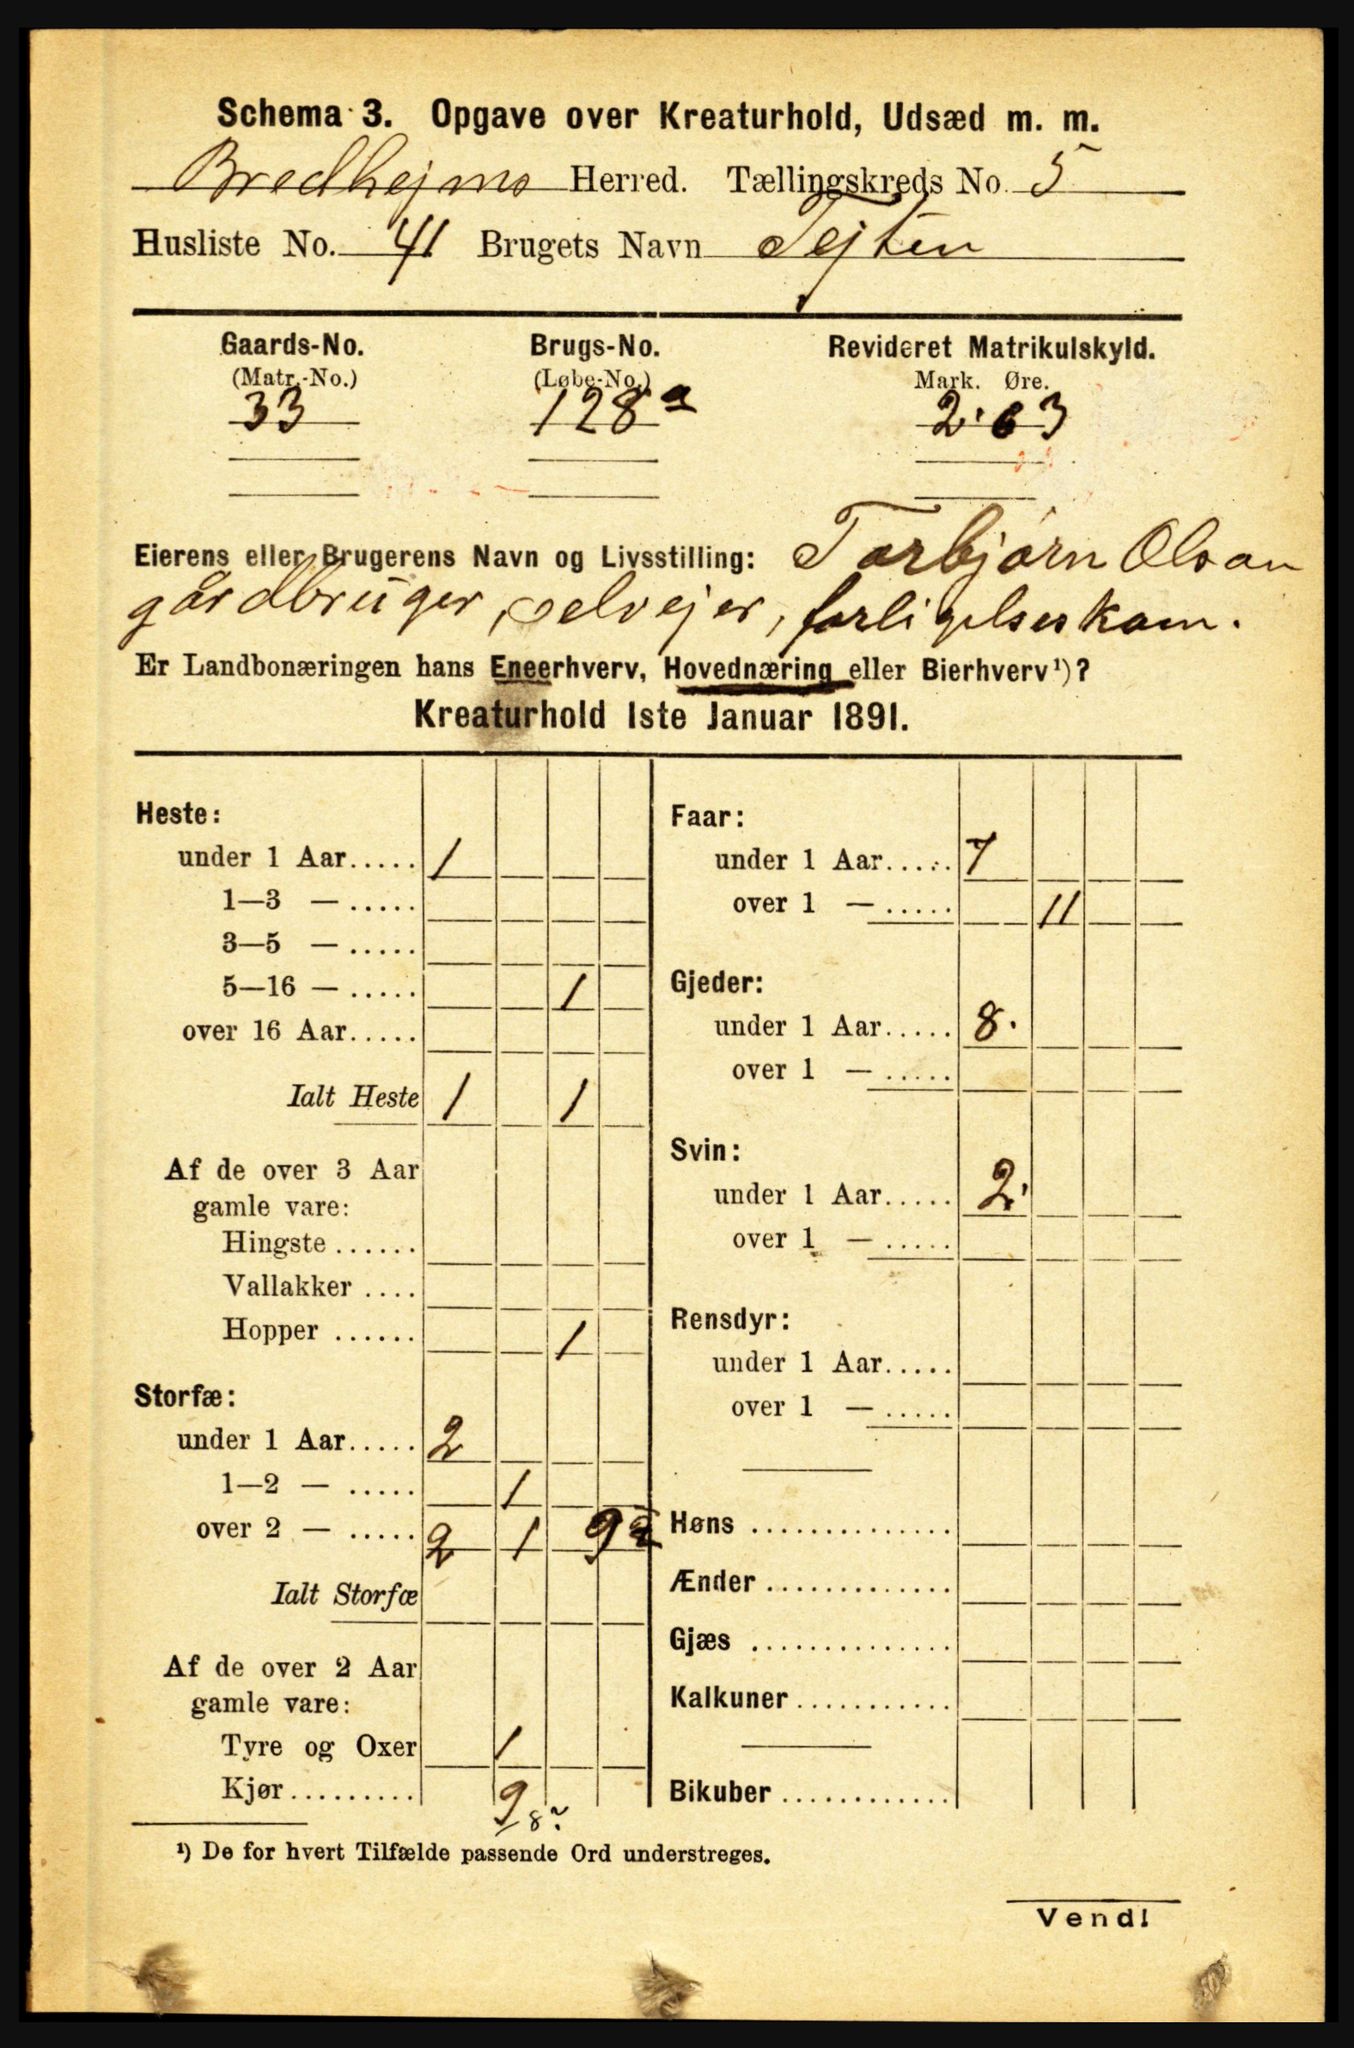 Schema 3. Opgave over Kreaturhold, Udsæd m. m.
Bredhejms Herred. Tællingskreds No. 5
Husliste No. 41 Brugets Navn Tejten
Gaards-No. Brugs-No. Revideret Matrikulskyld.
(Matr.-No.) (Løbe-No.) Mark. Øre.
33 128a 2.63
Eierens eller Brugerens Navn og Livsstilling: Torbjørn Olson
gårdbruger, selvejer, forligelseskom.
Er Landbonæringen hans Eneerhverv, Hovednæring eller Bierhverv¹)?
Kreaturhold 1ste Januar 1891.
Heste:
under 1 Aar..... 1
1—3 — .....
3—5 — .....
5—16 — ..... 1
over 16 Aar.....
Ialt Heste 1 1
Af de over 3 Aar
gamle vare:
Hingste ......
Vallakker ....
Hopper ...... 1
Storfæ:
under 1 Aar..... 2
1—2 — ..... 1
over 2 — ..... 2 1 9
Ialt Storfæ
Af de over 2 Aar
gamle vare:
Tyre og Oxer 1
Kjør......... 9
8?
Faar:
under 1 Aar..... 7
over 1 — ..... 11
Gjeder:
under 1 Aar..... 8.
over 1 — .....
Svin:
under 1 Aar..... 2.
over 1 — .....
Rensdyr:
under 1 Aar.....
over 1 — .....
Høns ..............
Ænder .............
Gjæs ..............
Kalkuner ...........
Bikuber .............
¹) De for hvert Tilfælde passende Ord understreges.
Vend!